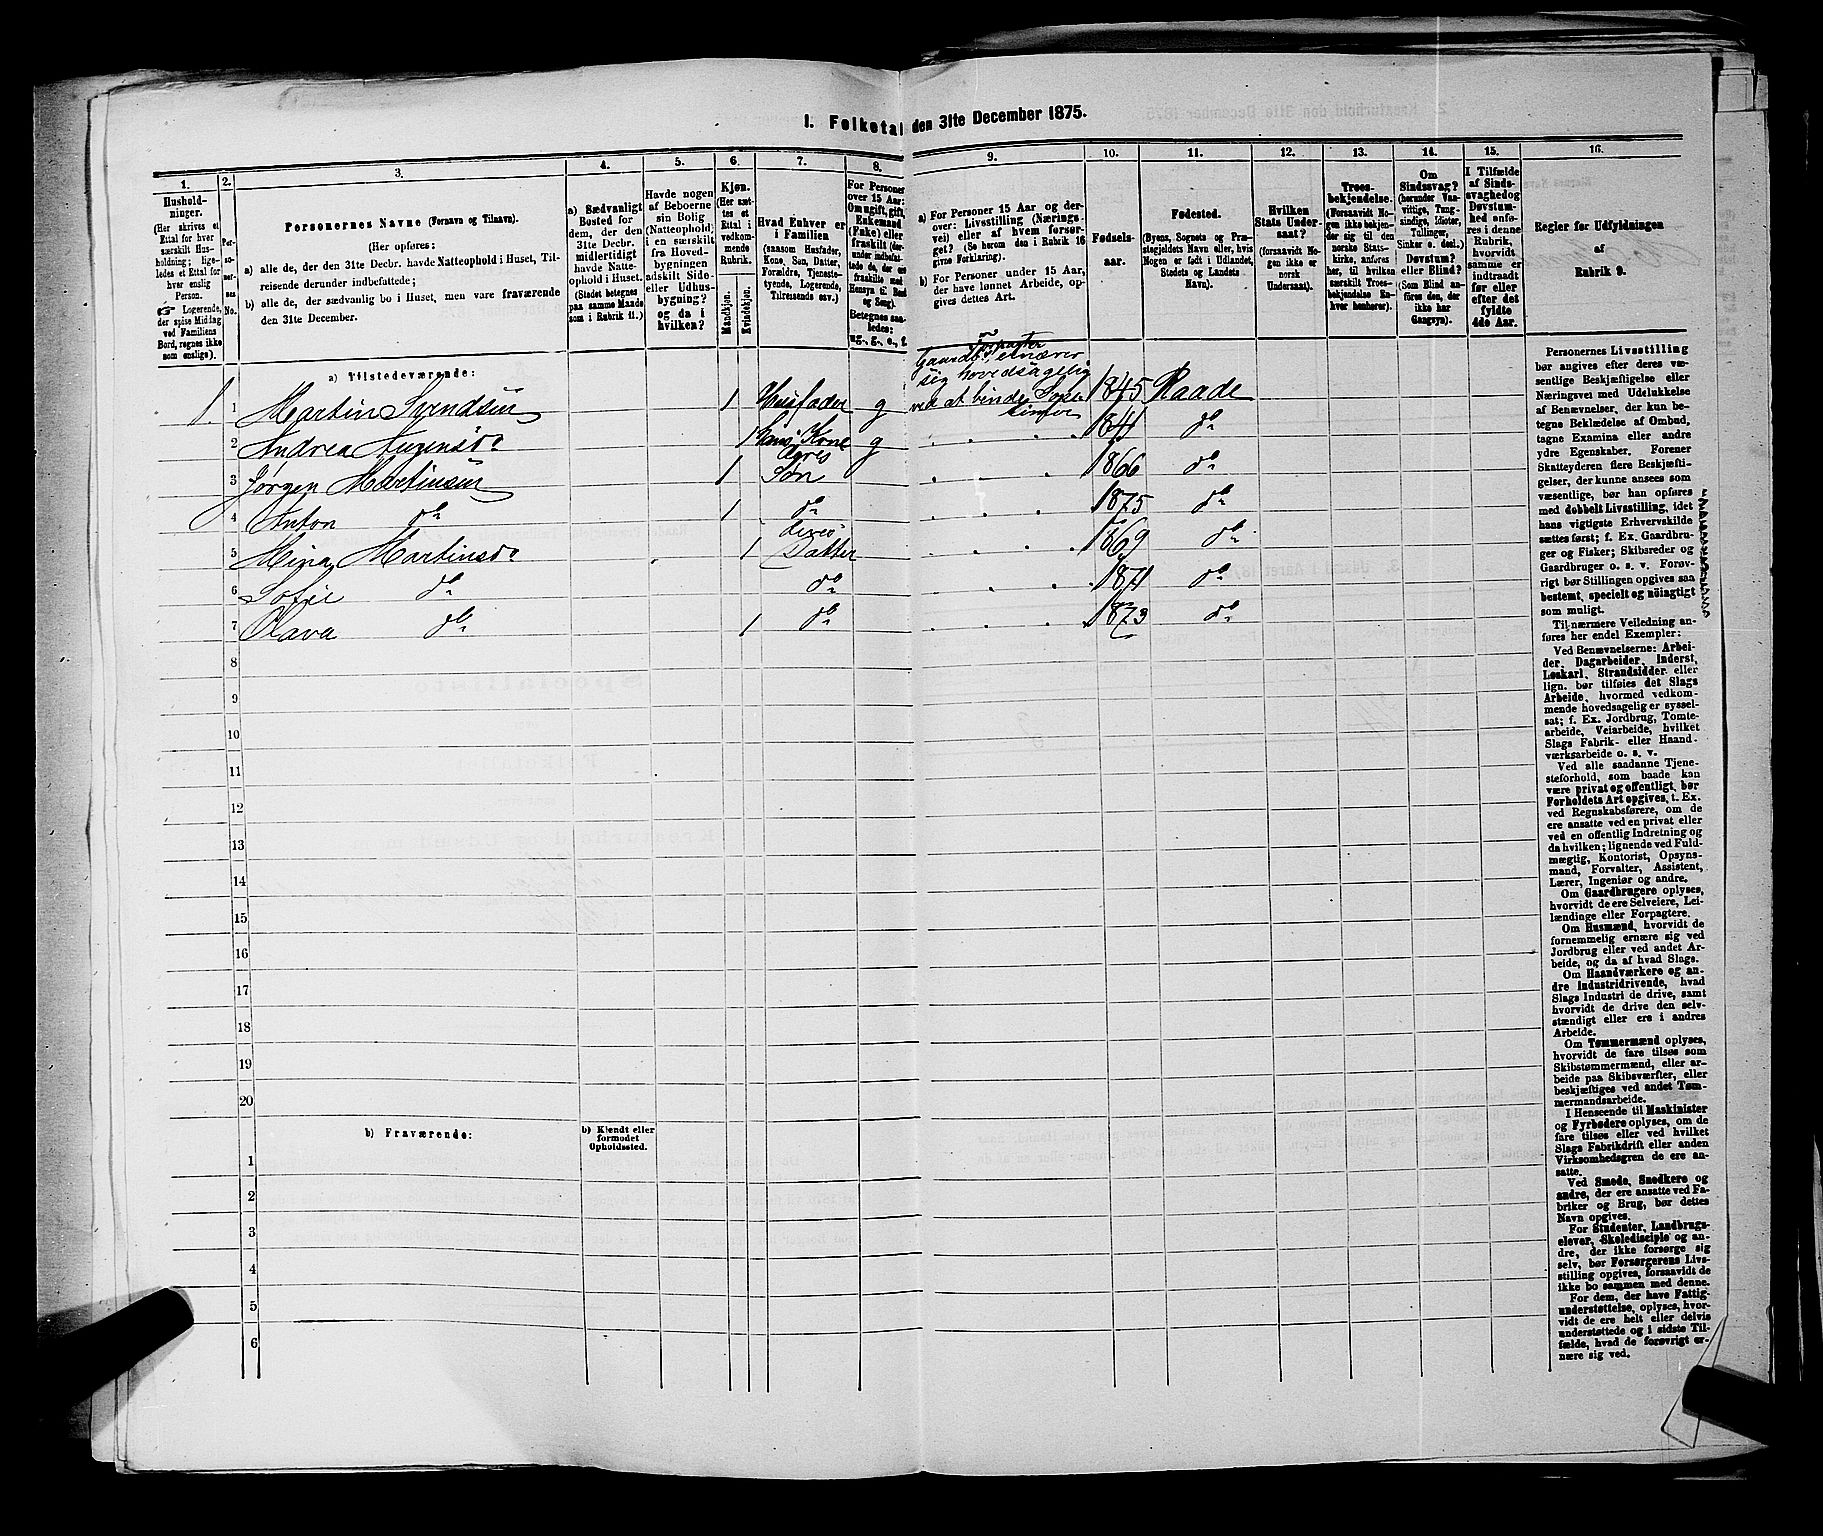 I. Folketal den 31te December 1875.
1. 2. 3. 4. 5. 6. 7. 8. 9. 10. 11. 12. 13. 14. 15. 16.
Hushold-
ninger.
(Her skrives et
Ettal for hver
særskilt Hus-
holdning; lige-
ledes et Ettal for
hver enslig
Person.
☞ Logerende,
der spise Middag
ved Familiens
Bord, regnes ikke
som enslige).
Per-
soner-
nes
No.
Personernes Navne (Fornavn og Tilnavn).
(Her opføres:
a) alle de, der den 31te Decbr. havde Natteophold i Huset, Til-
reisende derunder indbefattede;
b) alle de, der sædvanlig bo i Huset, men vare fraværende
den 31te December.
a) Sædvanligt
Bosted for
dem, der den
31te Decbr.
midlertidigt
havde Natte-
ophold i Huset.
(Stedet betegnes
paa samme Maade
som i Rubrik 11.)
Havde nogen
af Beboerne
sin Bolig
(Natteophold)
i en særskilt
fra Hoved-
bygningen
adskilt Side-
eller Udhus-
bygning?
og da i
hvilken?
Kjøn.
(Her sæt-
tes et
Ettal i
vedkom-
mende
Rubrik.
Mandkjøn.
Kvindekjøn.
Hvad Enhver er
i Familien
(saasom Husfader,
Kone, Søn, Datter,
Forældre, Tjeneste-
tyende, Logerende,
Tilreisende osv.)
For Personer
over 15 Aar:
Om ugift, gift,
Enkemand
(Enke) eller
fraskilt (der-
under indbefat-
tede de, der ere
fraskilte med
Hensyn til Bord
og Seng).
Betegnes saa-
ledes:
ug., g., e., f.
a) For Personer 15 Aar og der-
over: Livsstilling (Nærings-
vei) eller af hvem forsør-
get? (Se herom den i Rubrik 16
givne Forklaring).
b) For Personer under 15 Aar,
der have lønnet Arbeide, op-
gives dettes Art.
Fødsels-
aar.
Fødested.
(Byens, Sognets og Præ-
stegjeldets Navn eller, hvis
Nogen er født i Udlandet,
Stedets og Landets
Navn).
Hvilken
Stats Under-
saat?
(forsaavidt No-
gen ikke er
norsk
Undersaat).
Troes-
bekjendelse.
(Forsaavidt No-
gen ikke bekjen-
der sig til den
norske Stats-
kirke, anføres
her, til hvilken
særskilt Troes-
bekjendelse En-
hver henhører).
Om
Sindssvag?
(herunder Van-
vittige, Tung-
sindige, Idioter,
Tullinger,
Sinker o. desl.)
Døvstum?
eller Blind?
(Som Blind an-
føres den, der
ikke har
Gangsyn).
I Tilfælde
af Sinds-
svaghed og
Døvstum-
hed anfø-
res i denne
Rubrik,
hvorvidt
samme er
indtraadt
før eller
efter det
fyldte
4de Aar.
Regler for Udfyldningen
af
Rubrik 9.
a) Tilstedeværende:
Forpagter
Gaardb, ernærer
sig hovedsagelig
ved at binde
1. 1 Martin Svendsen 1 Husfader g 1845 Raade
2 Andrea 1 Hans Kone g 1841 do
3 Jørgen Martinsen 1 deres Søn 1866 do
4 Anton do 1 do 1875 do
5 Mina Martinsdr 1 deres Datter 1869 do
6 Sofie do do 1871 do
7 Olava do 1 do 1873 do
8
9
10
11
12
13
14
15
16
17
18
19
20
b) Fraværende:
b) Kjendt eller
formodet
Opholdssted.
1
2
3
4
5
6
Personernes Livsstilling
bør angives efter deres væ-
sentlige Beskjæftigelse eller
Næringsvei med Udelukkelse
af Benævnelser, der kun be-
tegne Beklædelse af Ombud,
tagne Examina eller andre
ydre Egenskaber. Forener
Skatteyderen flere Beskjæfti-
gelser, der kunne ansees som
væsentlige, bør han opføres
med dobbelt Livsstilling, idet
hans vigtigste Erhvervskilde
sættes først; f. Ex. Gaardbru-
ger og Fisker; Skibsreder og
Gaardbruger o. s. v. Forøv-
rigt bør Stillingen opgives saa
bestemt, specielt og nöiagtigt
som muligt.
Til nærmere Veiledning an-
føres her endel Exempler:
Ved Benævnelserne: Arbei-
der, Dagarbeider, Inderst,
Løskarl, Strandsidder eller
lign. bør tilføies det Slags
Arbeide, hvormed vedkom-
mende hovedsagelig er syssel-
sat; f. Ex. Jordbrug, Tomte-
arbeide, Veiarbeide, hvilket
Slags Fabrik- eller Haand-
værksarbeide o. s. v.
Ved alle saadanne Tjene-
steforhold, som baade kan
være privat og offentligt, bør
Forholdets Art opgives, t. Ex.
ved Regnskabsførere, om de
ere ansatte ved en privat eller
ved en offentlig Indretning og
da hvilken; lignende ved Fuld-
mægtig, Kontorist, Opsyns-
mand, Forvalter, Assistent,
Lærer, Ingeniør og andre.
Om Gaardbrugere oplyses,
hvorvidt de ere Selveiere, Lei-
lændinge eller Forpagtere.
Om Husmænd, hvorvidt de
fornemmelig ernære sig ved
Jordbrug eller ved andet Ar-
beide, og da af hvad Slags.
Om Haandværkere og an-
dre Industridrivende, hvad
Slags Industri de drive, samt
hvorvidt de drive den selv-
stændigt eller ere i andres
Arbeide.
Om Tømmermænd oplyses,
hvorvidt de fare tilsøs som
Skibstømmermænd, eller ar-
beide paa Skibsværfter, eller
beskjæftiges ved andet Tøm-
mermandsarbeide.
I Henseende til Maskinister
og Fyrbødere oplyses, om de
fare tilsøs eller ved hvilket
Slags Fabrikdrift eller anden
Virksomhedsgren de ere an-
satte.
Ved Smede, Snedkere og
andre, der ere ansatte ved Fa-
briker og Brug, bør dettes
Navn opgives.
For Studenter, Landbrugs-
elever, Skoledisciple og an-
dre, der ikke forsørge sig
selv, bør Forsørgerens Livs-
stilling opgives, forsaavidt de
ikke bo sammen med denne.
For dem, der have Fattig-
understøttelse, oplyses, hvor-
vidt de ere helt eller delvis
understøttede og i sidste Til-
fælde, hvad de forøvrigt er-
nære sig ved.